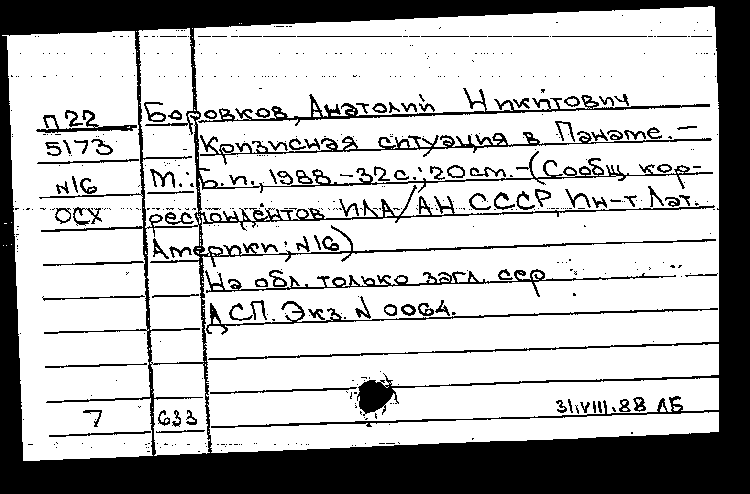 П22 Боровков, Анатолий Никитович
5173 Кризисная ситуация в Панаме. —
N16 М.: Б.и., 1988. - 32с.; 20см. - (Сообщ. кор-
ОСХ респондентов ИЛА/АН СССР, Ин-т Лат.
Америки; N16)
На обл. только загл. сер
ДСП. Экз. N 0064.
7 633 31.VIII.88 ЛБ